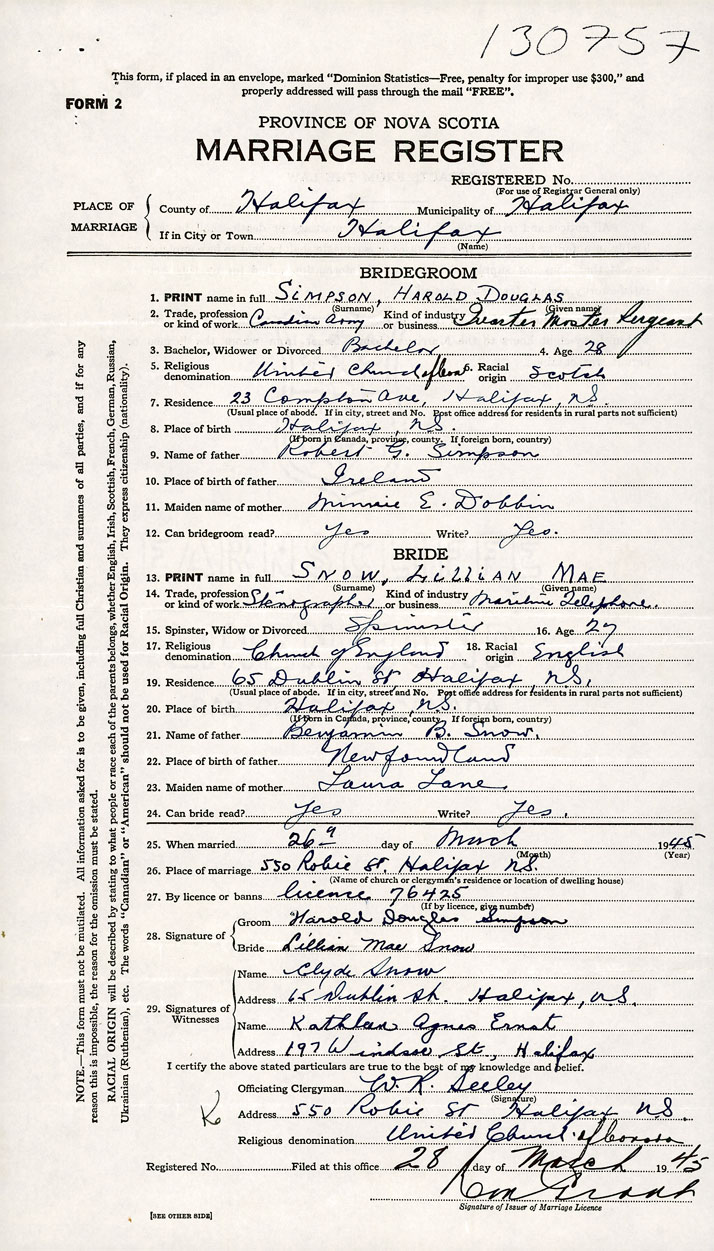 130757
This form, if placed in an envelope, marked "Dominion Statistics—Free, penalty for improper use $300," and
properly addressed will pass through the mail "FREE".
FORM 2
PROVINCE OF NOVA SCOTIA
MARRIAGE REGISTER
REGISTERED No.
(For use of Registrar General only)
PLACE OF MARRIAGE
County of Halifax Municipality of Halifax
If in City or Town Halifax
(Name)
BRIDEGROOM
1. PRINT name in full SIMPSON, HAROLD DOUGLAS
(Surname) (Given name)
2. Trade, profession or kind of work Canadian Army Kind of industry or business Quarter Master Sergeant
3. Bachelor, Widower or Divorced Bachelor 4. Age 28
5. Religious denomination United Church of Can 6. Racial origin Scotch
7. Residence 23 Compton Ave, Halifax, N.S.
(Usual place of abode. If in city, street and No. Post office address for residents in rural parts not sufficient)
8. Place of birth Halifax, N.S.
(If born in Canada, province, county. If foreign born, country)
9. Name of father Robert G. Simpson
10. Place of birth of father Ireland
11. Maiden name of mother Minnie E. Dobbin
12. Can bridegroom read? Yes Write? Yes.
BRIDE
13. PRINT name in full SNOW, LILLIAN MAE
(Surname) (Given name)
14. Trade, profession or kind of work Stenographer Kind of industry or business Maritime Telephone.
15. Spinster, Widow or Divorced Spinster 16. Age 27
17. Religious denomination Church of England 18. Racial origin English
19. Residence 65 Dublin St Halifax, N.S.
(Usual place of abode. If in city, street and No. Post office address for residents in rural parts not sufficient)
20. Place of birth Halifax, N.S.
(If born in Canada, province, county. If foreign born, country)
21. Name of father Benjamin B. Snow.
22. Place of birth of father Newfoundland
23. Maiden name of mother Laura Lane
24. Can bride read? Yes Write? Yes.
25. When married 26 day of March 1945
(Month) (Year)
26. Place of marriage 550 Robie St. Halifax N.S.
(Name of church or clergyman's residence or location of dwelling house)
27. By licence or banns license 76425
(If by licence, give number)
28. Signature of
Groom Harold Douglas Simpson
Bride Lillian Mae Snow
29. Signatures of Witnesses
Name Clyde Snow
Address 65 Dublin St. Halifax, N.S.
Name Kathleen Agnes Ernst
Address 197 Windsor St., Halifax
I certify the above stated particulars are true to the best of my knowledge and belief.
Officiating Clergyman W. R. Seeley
(Signature)
Address 550 Robie St Halifax N.S.
Religious denomination United Church of Canada
Registered No. Filed at this office 28 day of March 1945
Signature of Issuer of Marriage Licence
[SEE OTHER SIDE]
NOTE.—This form must not be mutilated. All information asked for is to be given, including full Christian and surnames of all parties, and if for any
reason this is impossible, the reason for the omission must be stated.
RACIAL ORIGIN will be described by stating to what people or race each of the parents belongs, whether English, Irish, Scottish, French, German, Russian,
Ukrainian (Ruthenian), etc. The words "Canadian" or "American" should not be used for Racial Origin. They express citizenship (nationality).